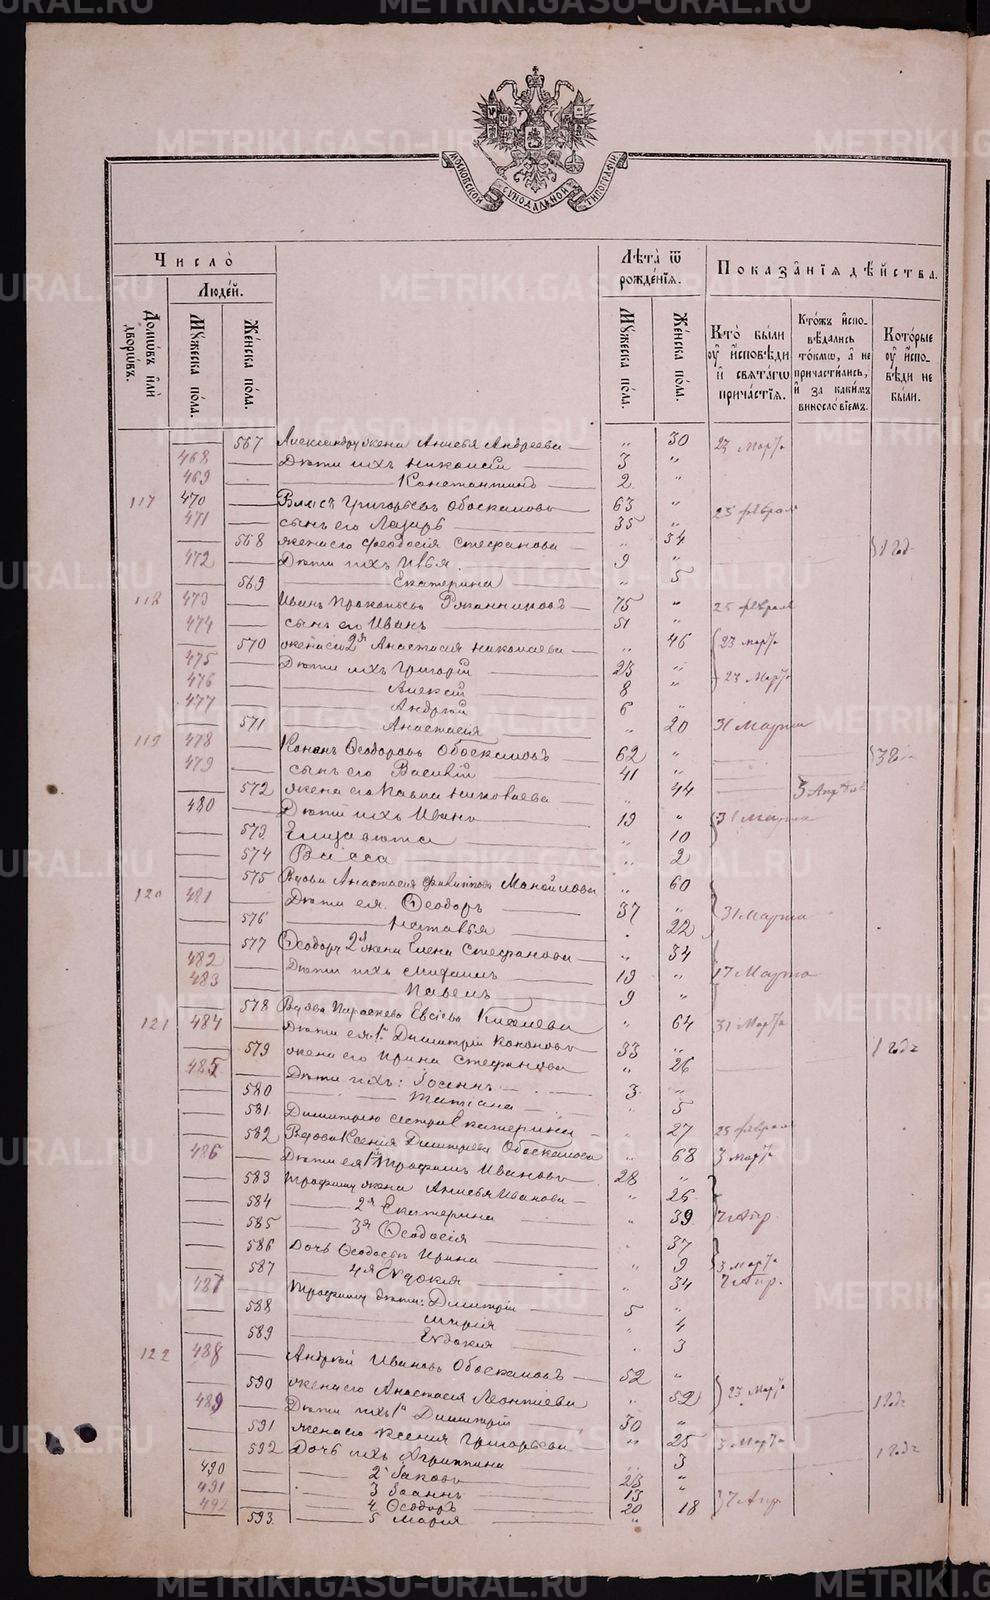 МОСКОВСКОЙ СѴНОДАЛЬНОЙ ТИПОГРАФІИ
Число̀
Людей.
Домѡвъ илѝ дворѡвъ.
Мꙋжеска пола.
Женска пола.
Лѣта ѿ рожденїѧ.
Мꙋжеска пола.
Женска пола.
Показанїѧ дѣйства.
Кто̀ были оу исповѣди и свѧтагѡ причастїѧ.
Ктожъ исповѣдались токмѡ, а не причастились, и за какимъ винословїемъ.
Которые оу исповѣди не были.
567 Александру жена Анисья Андреева „ 30 23 Марта
468 Дѣти ихъ Николай 3 „
469 Константинъ 2 „
117 470 Власъ Григорьевъ Обоскаловъ 63 „ 25 февраля
471 сынъ его Лазарь 35 „
568 жена его Феодосія Стефанова „ 34
472 Дѣти ихъ Илья 9 „
569 Екатерина „ 5
118 473 Иванъ Прокопьевъ 75 „ 25 февраля
474 сынъ его Иванъ 51 „
570 жена его 2я Анастасія Николаева „ 46 23 Марта
475 Дѣти ихъ Григорій 23 „
476 Алексій 8 „ 23 Марта
477 Андрей 6 „
571 Анастасія „ 20 31 Марта
119 478 Кононъ Ѳеодоровъ Обоскаловъ 62 „
479 сынъ его Василій 41 „
572 жена его Павла Николаева „ 44 3 Апрѣля
480 Дѣти ихъ Иванъ 19 „ 31 Марта
573 Елизавета „ 10
574 Васса „ 2
575 Вдова Анастасія Филиппова Маной­лова „ 60
120 481 Дѣти ея Ѳеодоръ 37 „ 31 Марта
576 Наталья „ 22
577 Ѳеодору 2я жена Елена Стефанова „ 34
482 Дѣти ихъ Михаилъ 19 „ 17 Марта
483 Павелъ 9 „
578 Вдова Параскева Евсіева „ 64 31 Марта
121 484 Дѣти ея 1й Димитрій Кононовъ 33 „ 1 годъ
579 жена его Ирина Стефанова „ 26
485 Дѣти ихъ: 3 „
580 Татіана „ 5
581 Димитрію сестра Екатерина 27 25 февраля
582 Вдова Ксенія Димитріева Обоскалова „ 68 3 Марта
486 Дѣти ея 1й Трофимъ Ивановъ 28 „
583 Трофиму жена Анисья Иванова „ 26
584 2я Екатерина „ 39 7 Апр.
585 3я Ѳеодосія 37
586 Дочь Ѳеодосьи Ирина „ 9 3 Марта
587 4я Евдокія 34 7 Апр.
487 Трофиму дѣти: Димитрій 5 „
588 Марія „ 4
589 Евдокія „ 3
122 488 Андрей Ивановъ Обоскаловъ 52 „
590 жена его Анастасія Леонтіева „ 52 23 Марта
489 Дѣти ихъ 1й Димитрій 30 „ 1 годъ
591 жена его Ксенія Григорьева „ 25 3 Марта
592 Дочь ихъ Агриппина 3 1 годъ
490 2 Іаковъ 23 „
491 3 Іоаннъ 13 „
492 4 Ѳеодоръ 20 18 7 Апр.
593 5 Марія „
METRIKI.GASO-URAL.RU